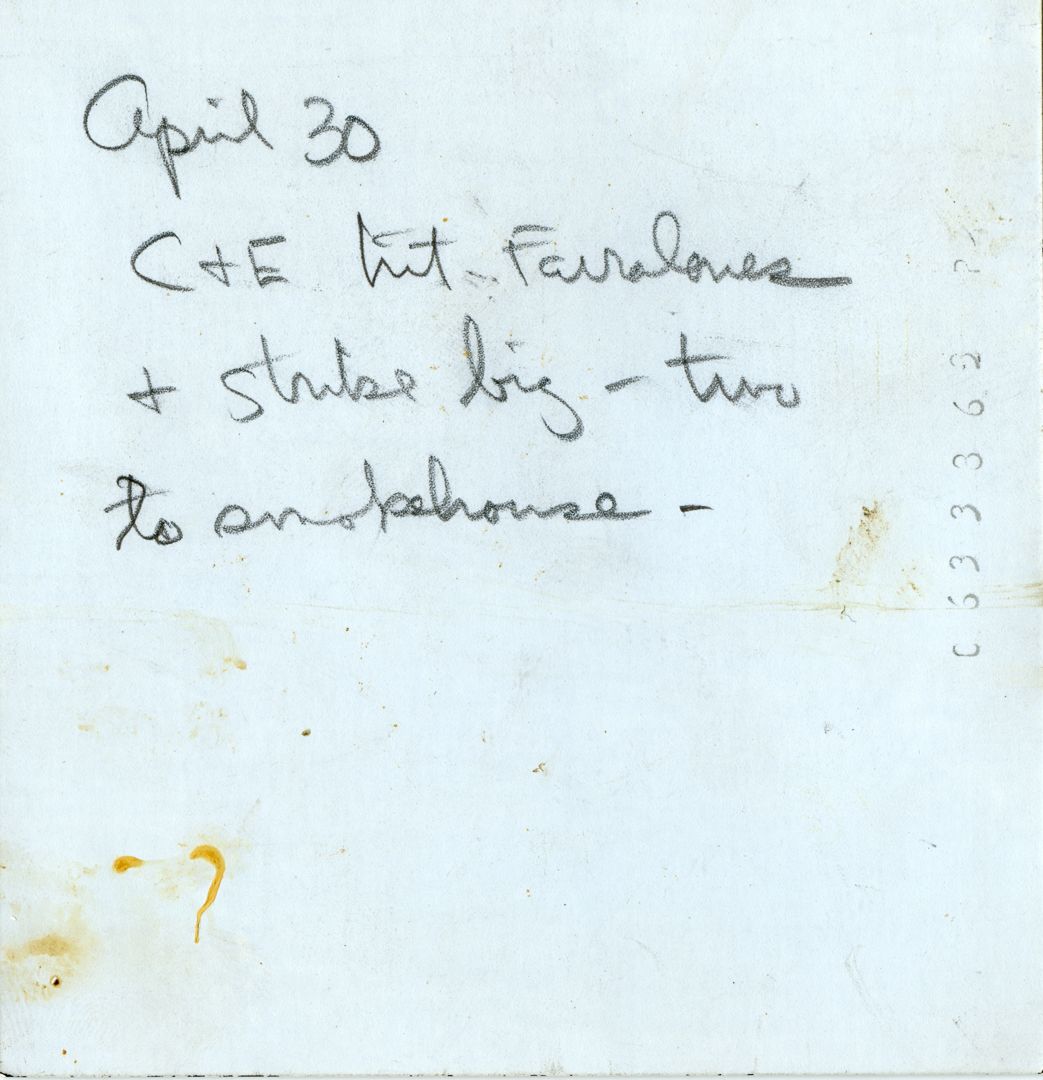 April 30
C + E hit Farralones
+ strike big - two
to smokehouse -